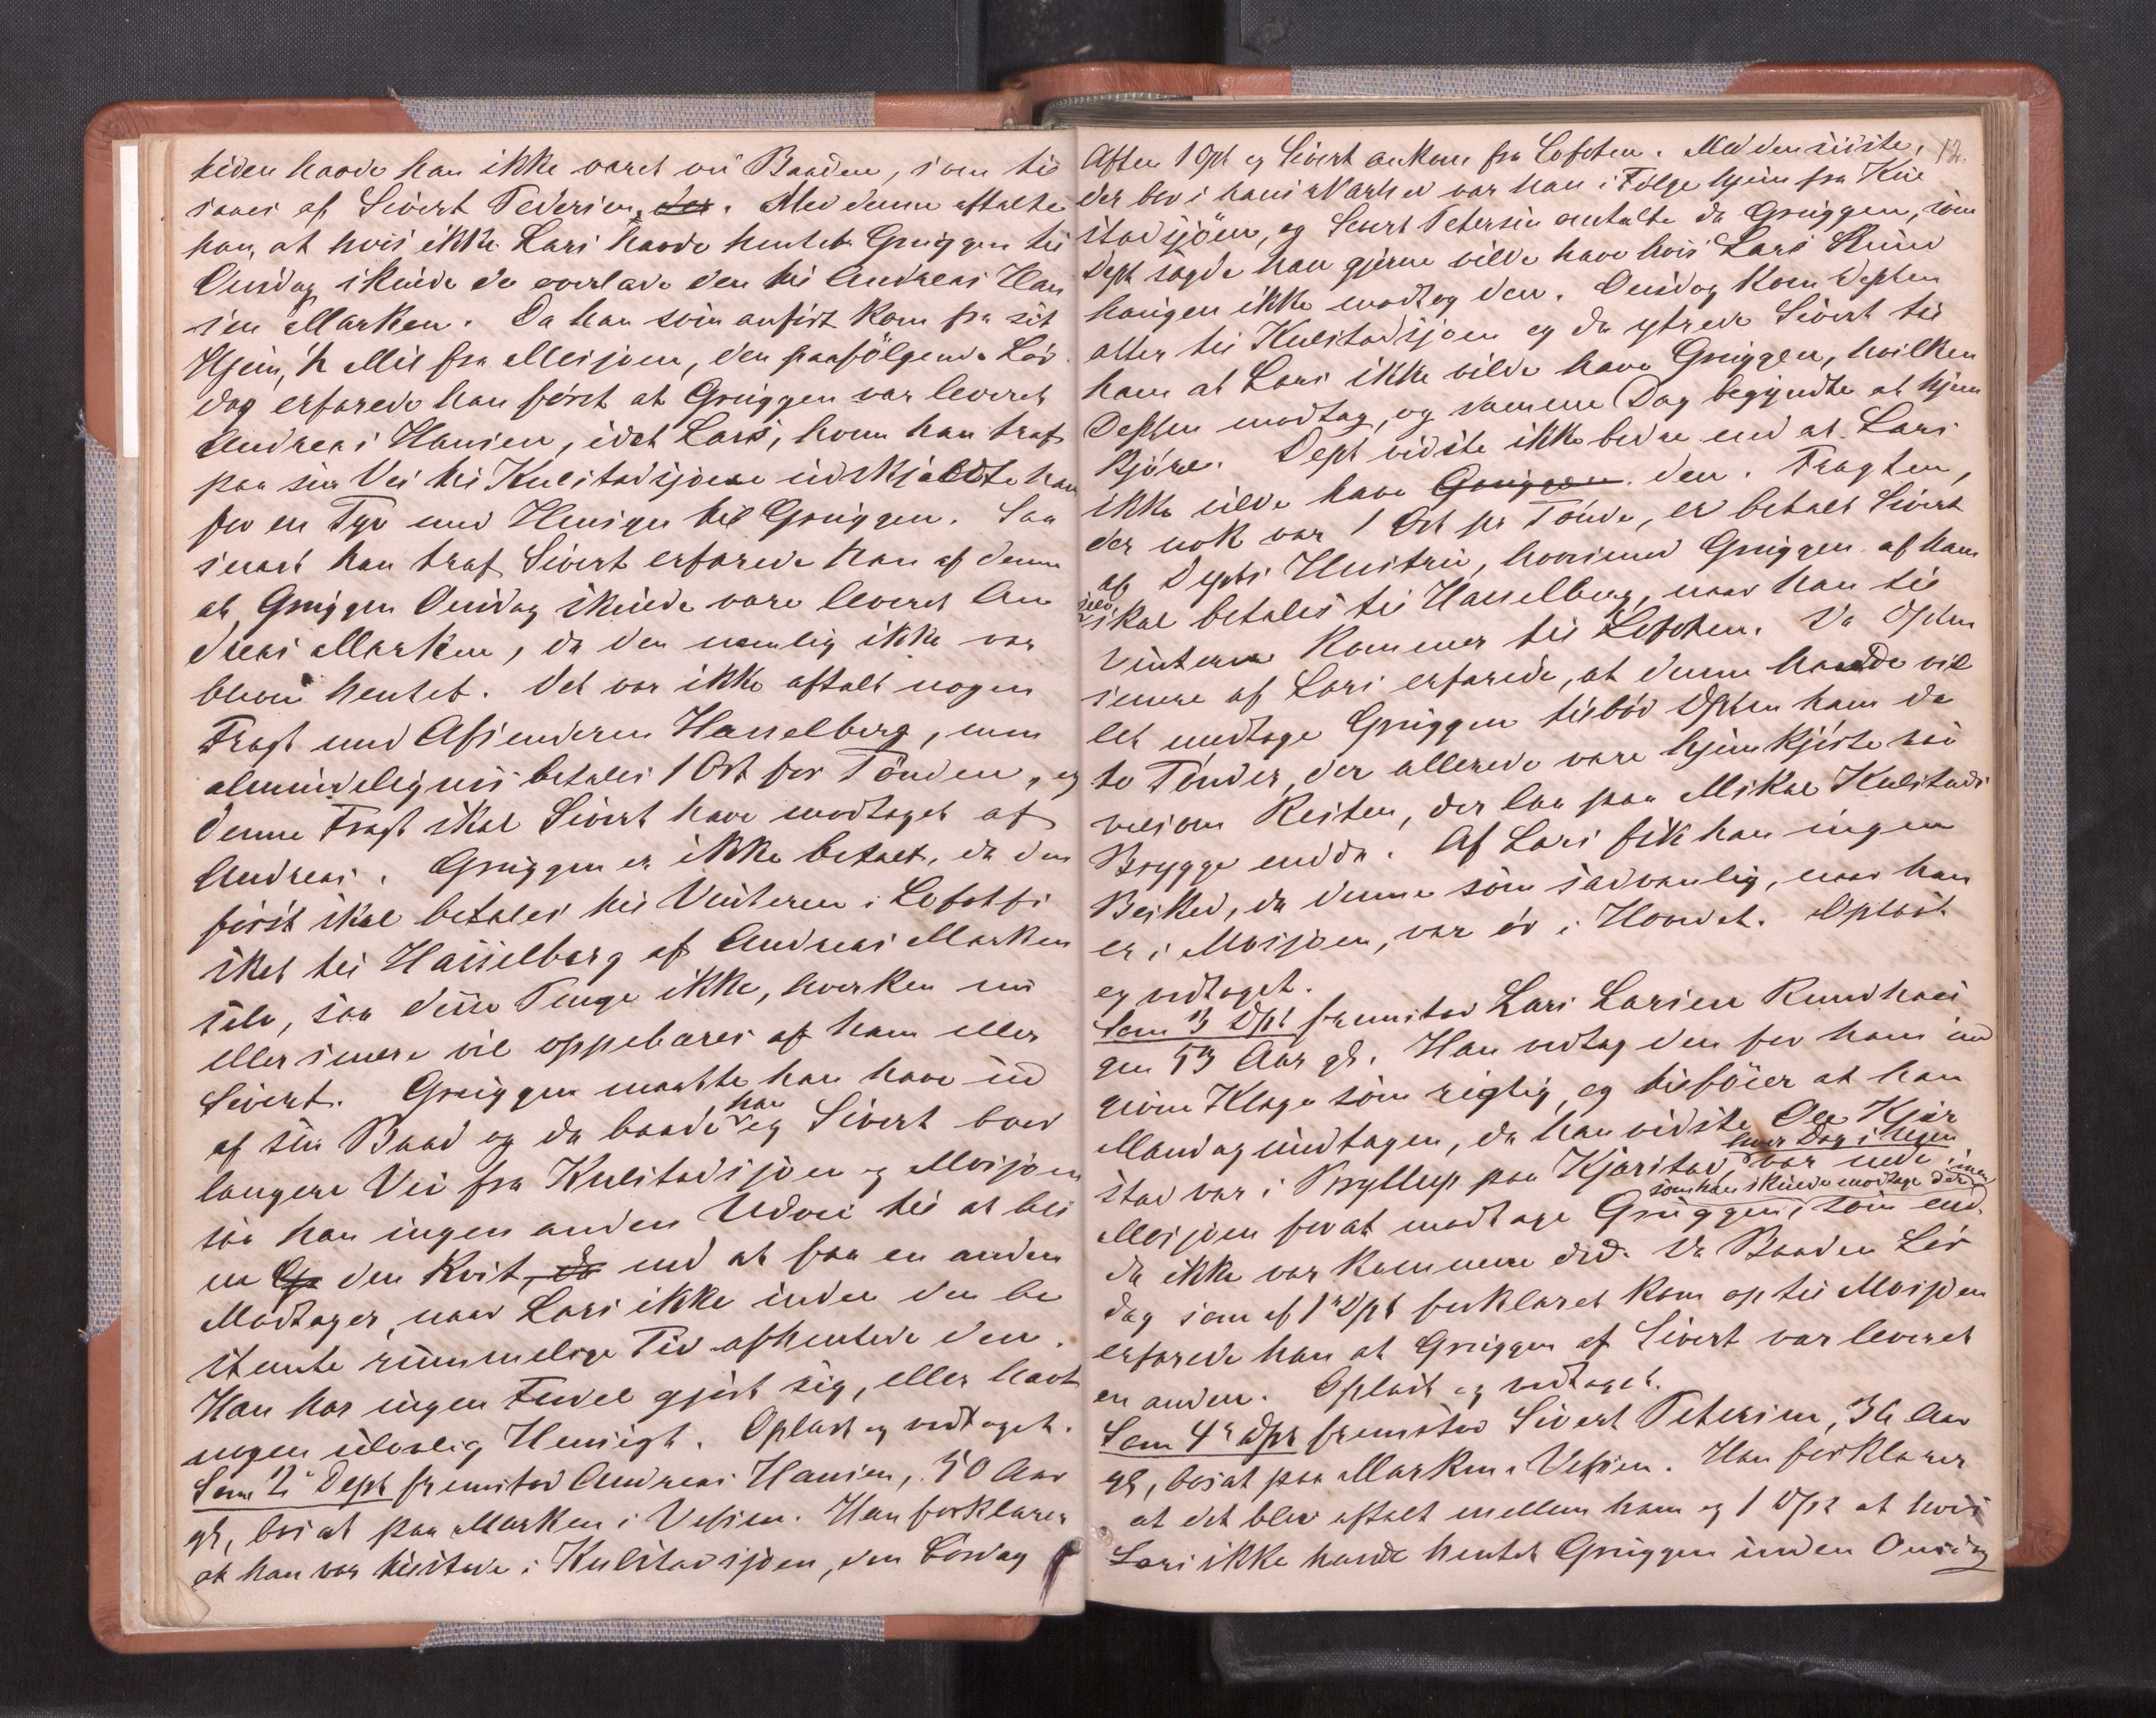 tiden havde han ikke været ved Baaden, som til
saaes af Sivert Pedersen, der. Med denne aftalte
han, at hvis ikke Lars havde hentet Gruggen til
Onsdag skulde de overlade den til Andreas Han
sen Marken. Da han som anført kom fra sit
Hjem, ½ Mil fra Mosjøen, den paafölgende Lör
dag erfarede han først at Gruggen var leveret
Andreas Hansen, idet Lars, hvem han traf
paa sin Vei til Kulstadsjøen udskjældte ham
for en Tyv med Hensyn til Gruggen. Saa
snart han traf Sivert erfarede han af denne
at Gruggen Onsdag skulde være leveret An
dreas Marken, da den nemlig ikke var
bleven hentet. Det var ikke aftalt nogen
Fragt med Afsenderen Hasselberg, men
almindeligvis betales 1 Ort for Tönden, og
denne Fragt skal Sivert have modtaget af
Andreas. Gruggen er ikke betalt, da den
först skal betales til Vinteren i Lofotfi
sket til Hasselberg af Andreas Marken
selv, saa disse Penge ikke, hverken nu
eller senere vil oppebæres af ham eller
Sivert. Gruggen maatte han have ud
af sin Baad og da baade han og Sivert boed
længere Vei fra Kulstadsjøen og Mosjøen
saa han ingen anden Udvei til at bli
ve den kvit, da end at faa en anden
Modtager, naar Lars ikke inden den be
stemte rummelige Tid afhentede den.
Han har ingen Fordel gjort sig, eller havt
nogen ulovlig Hensigt. Oplæst og vedtaget.
Som 2 Dept fremstod Andreas Hansen, 50 Aar
gl, bosat paa Marken i Vefsen. Han forklarer
at han var tilstede i Kulstadsjøen, den Lördag
12.
Aften 1 Dpt og Sivert ankom fra Lofoten. Med den sidste,
der bor i hans Nærhed var han i Fölge hjem fra Kul
stadsjöen, og Sivert Petersen omtalte da Gruggen, som
Dept sagde han gjerne vilde have hvis Lars Rund
haugen ikke modtog den. Onsdag kom Depten
atter til Kulstadsjøen og da yttrede Sivert til
ham at Lars ikke vilde have Gruggen, hvilken
Depten modtog, og samme Dag begyndte at hjem
kjöre. Dept vidste ikke bedre end at Lars
ikke vilde have Gruggen den. Fragten,
der nok var 1 Ort pr Tönde, er betalt Sivert
af Depts Hustru, hvorimod Gruggen af ham
selv skal betales til Hasselberg, naar han til
Vinteren kommer til Lofoten. Da Dpten
senere af Lars erfarede, at denne havde vil
let modtage Gruggen tilböd Dpten ham de
to Tönder, der allerede vare hjemkjörte saa
velsom Resten, der laa paa Mikal Kulstads
Brygge endda. Af Lars fik han ingen
Besked, da denne som sædvanlig, naar han
er i Mosjøen, var ör i Hovedet. Oplæst
og vedtaget.
Som 3 Dpt fremstod Lars Larsen Rundhau
gen 53 Aar gl. Han vedtog den for ham ind
givne Klage som rigtig, og tilföier at han
Mandag undtagen, da han vidste Ole Kjær
stad var i Bryllup paa Kjærstad, hver Dag i Ugen var nede i
Mosjøen for at modtage Gruggen, som han skulde modtage der, som end
da ikke var kommen did. Da Baaden Lör
dag som af 1 Dpt forklaret kom op til Mosjøen
erfarede han at Gruggen af Sivert var leveret
en anden. Oplæst og vedtaget.
Som 4 Dpt fremstod Sivert Petersen, 36 Aar
gl, bosat paa Marken i Vefsen. Han forklarer
at det blev aftalt mellem ham og 1 Dpt at hvis
Lars ikke havde hentet Gruggen inden Onsdag